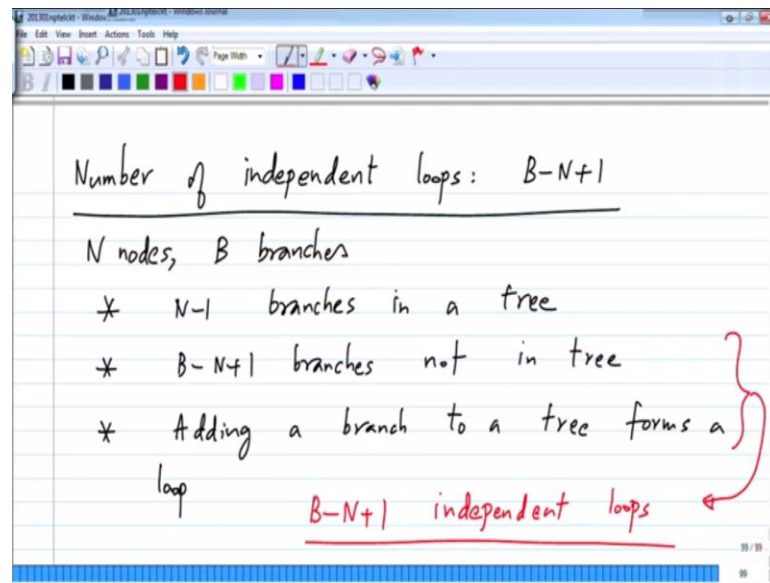 201301nptelckt - Windows Journal
File Edit View Insert Actions Tools Help
Page Width
B I
Number of independent loops: B-N+1
N nodes, B branches
* N-1 branches in a tree
* B-N+1 branches not in tree
* Adding a branch to a tree forms a
loop
B-N+1 independent loops
99 / 99
99